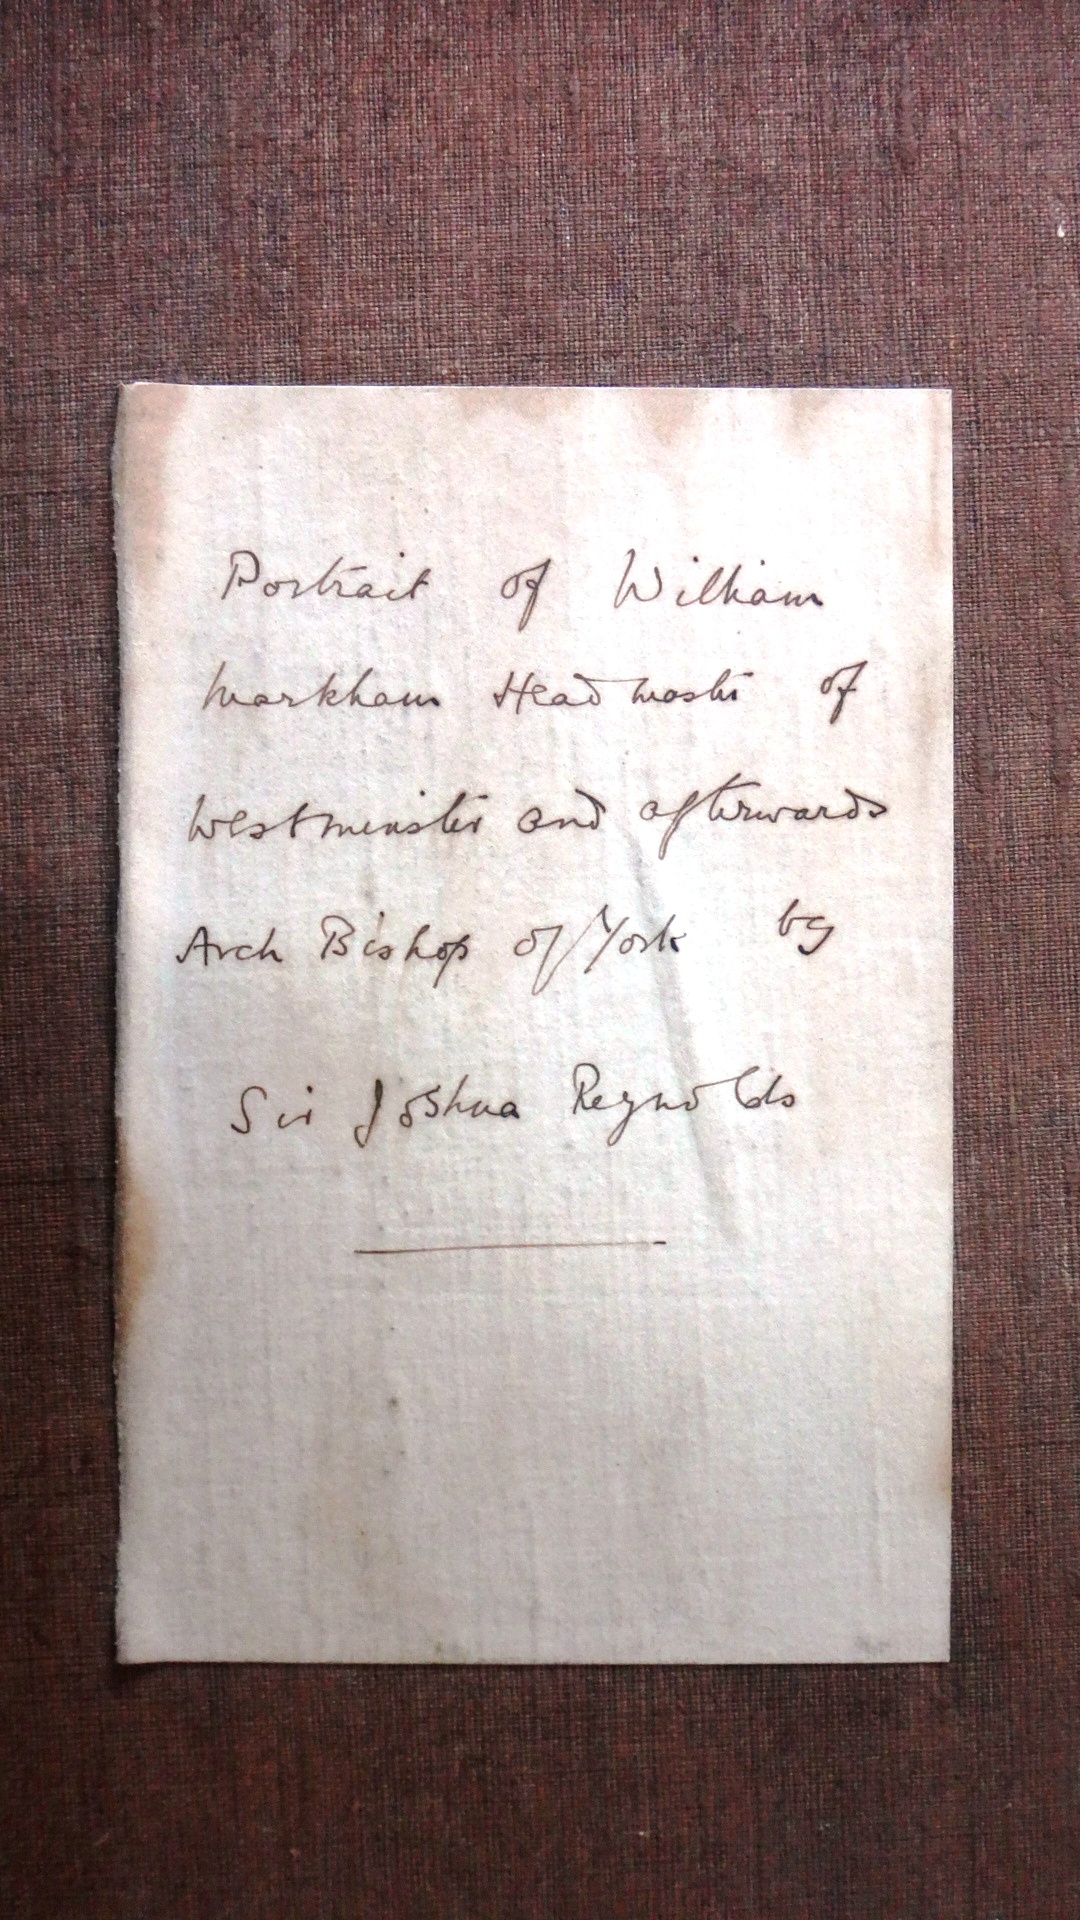 Portrait of William
Markham Head Master of
Westminster and afterwards
Arch Bishop of York by
Sir Joshua Reynolds